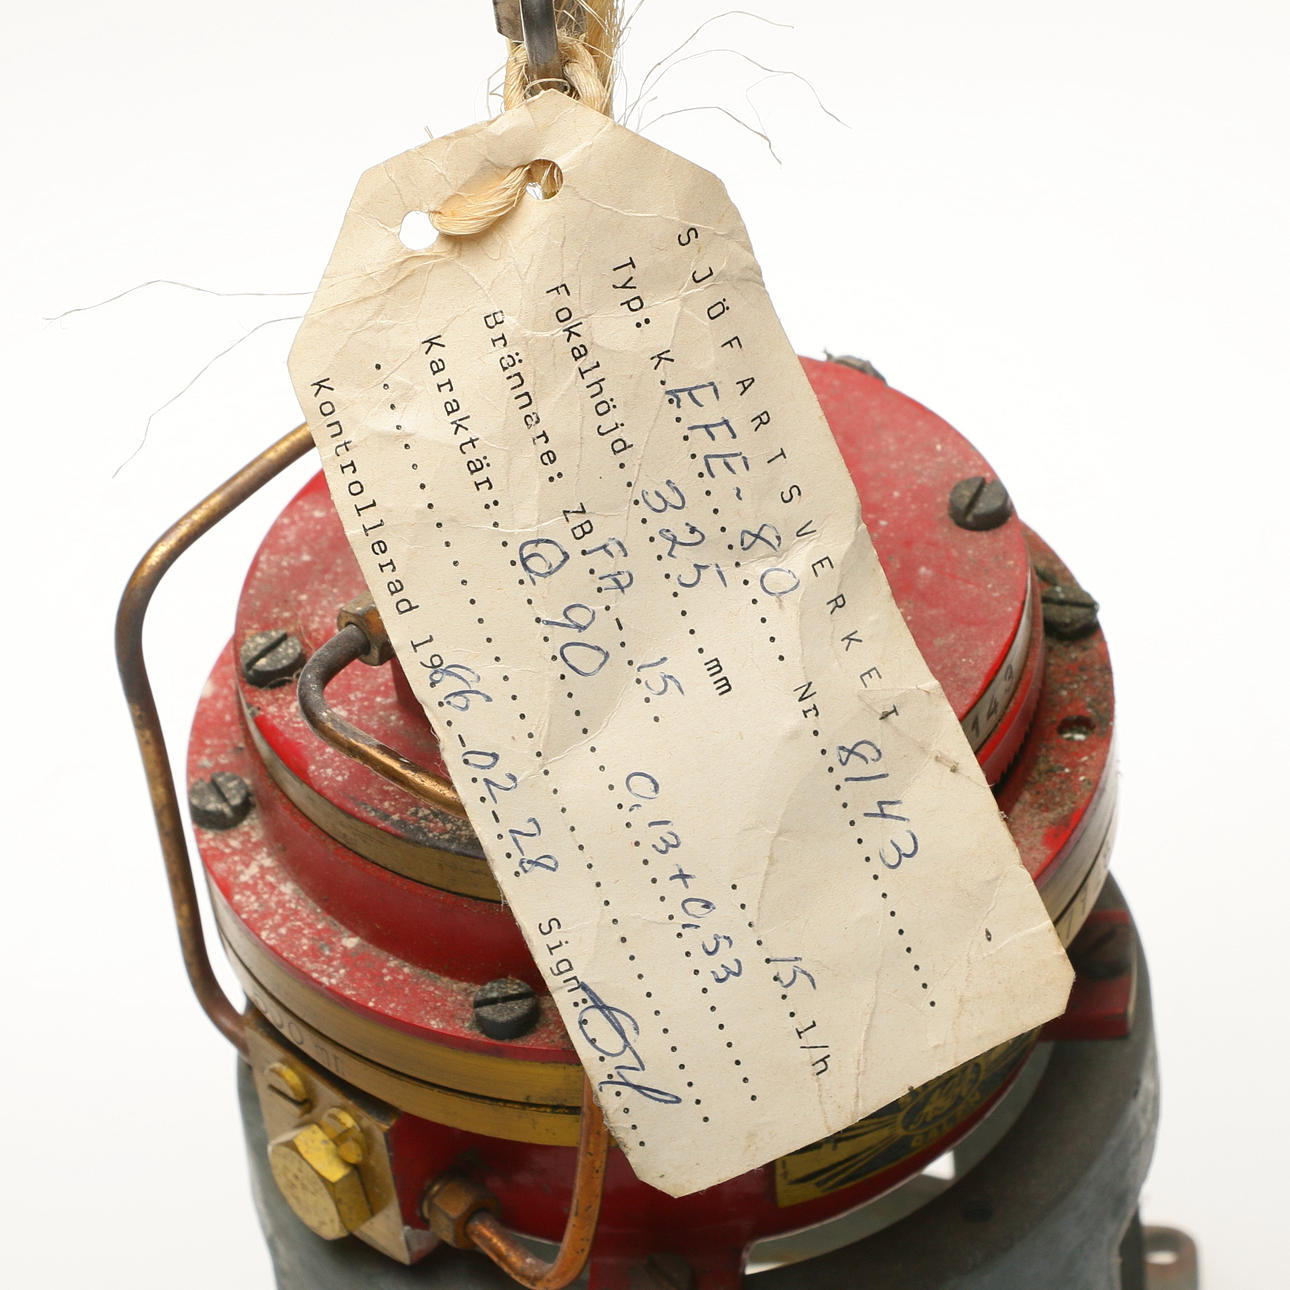 SJÖFARTSVERKET
Typ: K. EFE-80 Nr. 8143
Fokalhöjd. 325 mm
Brännare: ZB FA-15. 15 l/h
Karaktär: Q 90 0,13+0,53
Kontrollerad 1986-02-28 Sign:
143